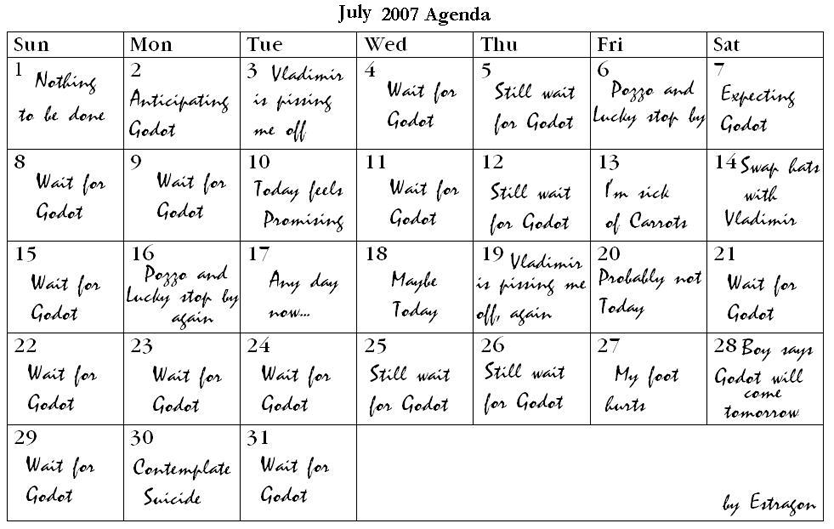 July 2007 Agenda
Sun Mon Tue Wed Thu Fri Sat
1 Nothing
to be done
2
Anticipating
Godot
3 Vladimir
is pissing
me off
4
Wait for
Godot
5
Still wait
for Godot
6
Pozzo and
Lucky stop by
7
Expecting
Godot
8
Wait for
Godot
9
Wait for
Godot
10
Today feels
Promising
11
Wait for
Godot
12
Still wait
for Godot
13
I'm sick
of Carrots
14 Swap hats
with
Vladimir
15
Wait for
Godot
16
Pozzo and
Lucky stop by
again
17
Any day
now...
18
Maybe
Today
19 Vladimir
is pissing me
off, again
20
Probably not
Today
21
Wait for
Godot
22
Wait for
Godot
23
Wait for
Godot
24
Wait for
Godot
25
Still wait
for Godot
26
Still wait
for Godot
27
My foot
hurts
28 Boy says
Godot will
come
tomorrow
29
Wait for
Godot
30
Contemplate
Suicide
31
Wait for
Godot
by Estragon